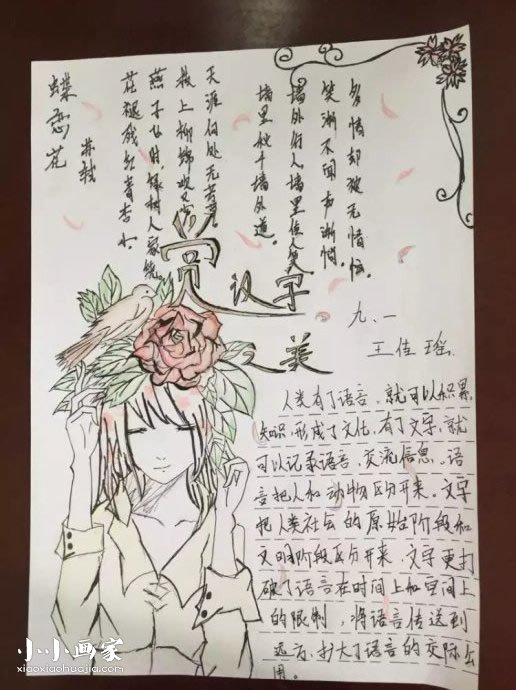 蝶恋花
苏轼
花褪残红青杏小。
燕子飞时,绿树人家绕。
枝上柳绵吹又少
天涯何处无芳草
墙里秋千墙外道。
墙外行人,墙里佳人笑。
笑渐不闻声渐悄。
多情却被无情恼。
赏汉字
之美
九.一
王佳瑶
人类有了语言,就可以积累
知识,形成了文化,有了文字,就
可以记录语言,交流信息。语
言把人和动物区分开来。文字
把人类社会的原始阶段和
文明阶段区分开来。文字更打
破了语言在时间上和空间上
的限制,将语言传送到
远方,扩大了语言的交际公
用。
小小画家
xiaoxiaohuajia.com